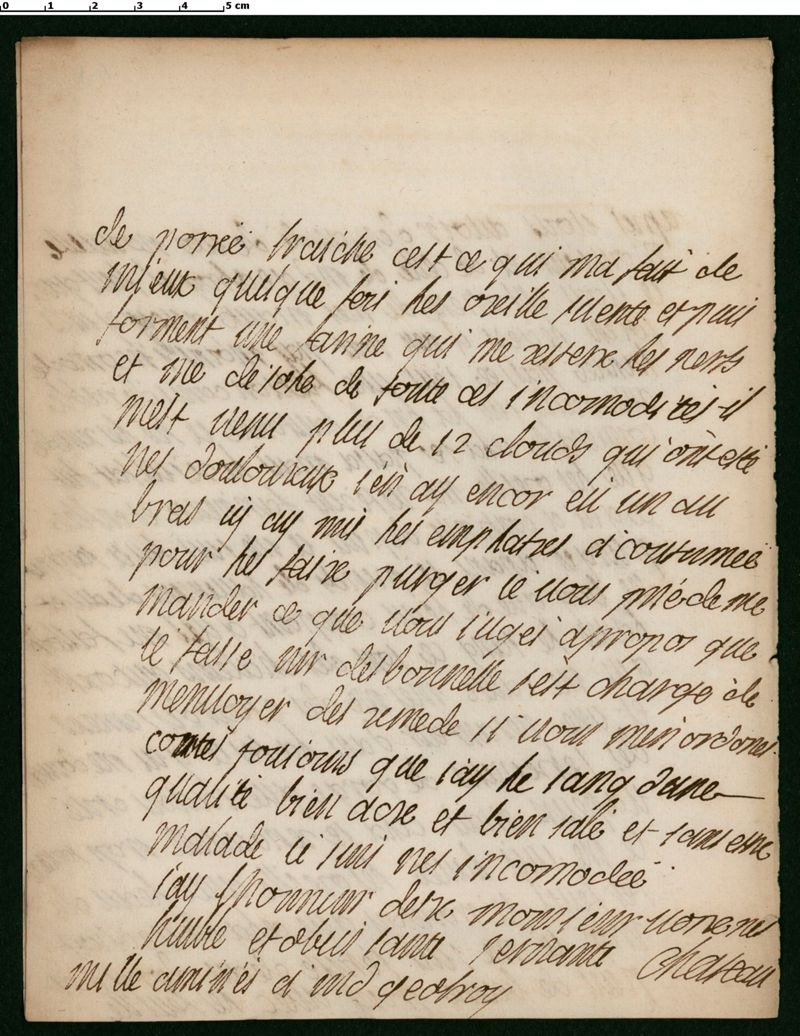 0 1 2 3 4 5 cm
de poreé fraiche cest ce qui ma fait de
mieux quelque fois les oreille suente et puis
forment une farine qui me reserre les nerfs
et me désole de toute ces incomodités il
mest venu plus de 12 clouds qui ont esté
tres douloureux ien ay encor eu un au
bras iy ay mis les emplatres acoutumeé
pour les faire purger ie vous prie de me
mander ce que vous iugés apropos que
ie fasse mr desbournelle sest chargé de
menvoyer des remede si vous men ordonés
contés toujours que iay le sang dune
qualité bien acre et bien salé et sans estre
malade ie suis tres incomodeé
iay lhonneur detre monsieur votre tres
humble et obeissante servante chateau
mille amities a md geofroy